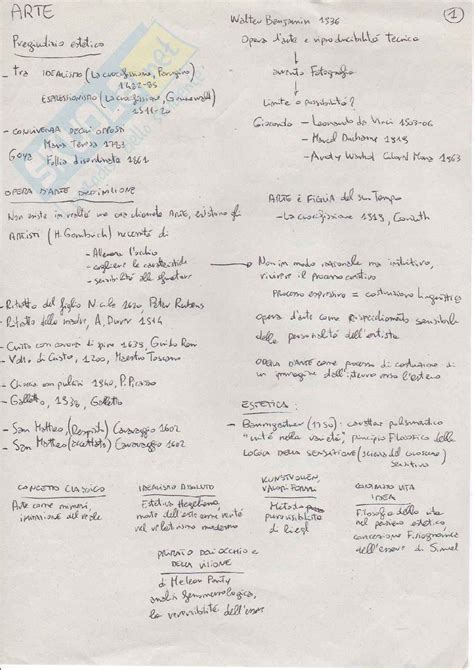 ARTE
Pregiudizio estetico
- tra IDEALISMO (La crocifissione, Perugino)
1482-85
ESPRESSIONISMO (La crocifissione, Grunewald)
1511-20
- CONVIVENZA DEGLI OPPOSTI
Maria Teresa 1783
Goya
Follia disordinata 1861
OPERA D'ARTE DEFINIZIONE
Non esiste in realtà una cosa chiamata ARTE, esistono gli
ARTISTI (H. Gombrich) necessità di
- Allenare l'occhio
- cogliere le caratteristiche
- sensibilità alle sfumature
- Ritratto del figlio Nicola 1620, Peter Rubens
- Ritratto della madre, A. Durer 1514
- Cristo con corona di spine 1639, Guido Reni
- Volto di Cristo, 1200, Maestro Toscano
- Chioccia con pulcini 1940, P. Picasso
- Galletto, 1938, Galletto
- San Matteo (Respinto) Caravaggio 1602
- San Matteo (accettato) Caravaggio 1602
Walter Benjamin 1936
1
Opera d'arte e riproducibilità tecnica
avvento Fotografia
Limite o possibilità?
Gioconda - Leonardo da Vinci 1503-06
- Marcel Duchamp 1919
- Andy Warhol Colored Mona 1963
ARTE È FIGLIA del suo Tempo
- La crocifissione 1919, Corinth
Non in modo razionale ma intuitivo,
rivivere il processo creativo
PROCESSO espressivo = costruzione linguistica
opera d'arte come rispecchiamento sensibile
della personalità dell'artista
OPERA D'ARTE come processo di costruzione di
un immagine dall'interno verso l'esterno
ESTETICA:
- Baumgarten (1750): carattere polisemantico
"unità nella varietà", principio filosofico della
LOGICA DELLA SENSAZIONE (scienza del conoscere)
sensitivo
CONCETTO CLASSICO
Arte come mimesi,
imitazione del reale
IDEALISMO ASSOLUTO
Estetica Hegeliana
morte dell'arte come verità
nel relativismo moderno
PRIMATO DELL'OCCHIO E
DELLA VISIONE
di Merleau Ponty
analisi fenomenologica,
la reversibilità dell'essere
KUNSTWOLLEN,
Metodo
purovisibilità
di Riegl
VITA
IDEA
Filosofia della vita
nel pensiero estetico,
concezione
dell'essere di Simmel